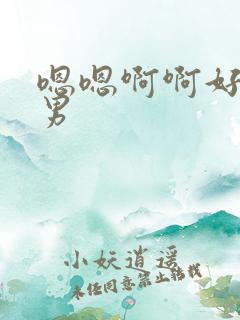 嗯嗯啊啊好
男
小妖逍遥
未经同意禁止转载